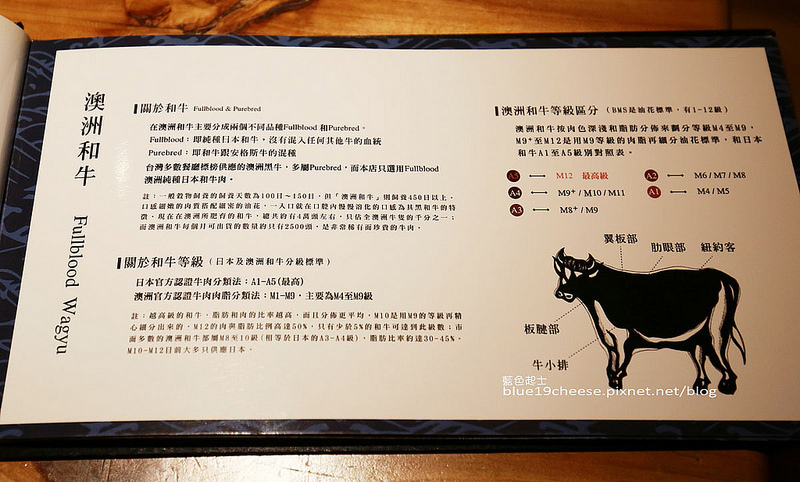 澳洲和牛 Fullblood Wagyu
關於和牛 Fullblood & Purebred
在澳洲和牛主要分成兩個不同品種Fullblood 和Purebred。
Fullblood：即純種日本和牛，沒有混入任何其他牛的血統
Purebred：即和牛跟安格斯牛的混種
台灣多數餐廳標榜供應的澳洲黑牛，多屬Purebred，而本店只選用Fullblood
澳洲純種日本和牛肉。
註：一般穀物飼養的飼養天數為100日～150日，但「澳洲和牛」則飼養450日以上，
口感細嫩的肉質搭配細密的油花，一入口就在口腔內慢慢溶化的口感為其黑和牛的特
徵，現在在澳洲所肥育的和牛，總共約有4萬頭左右，只佔全澳洲牛隻的千分之一；
而澳洲和牛每個月可出貨的數量約只有2500頭，是非常稀有而珍貴的牛肉。
關於和牛等級（日本及澳洲和牛分級標準）
日本官方認證牛肉分類法：A1-A5(最高)
澳洲官方認證牛肉肉脂分類法：M1-M9，主要為M4至M9級
註：越高級的和牛，脂肪和肉的比率越高，而且分佈更平均，M10是用M9的等級再精
心細分出來的，M12的肉與脂肪比例高達50%，只有少於5%的和牛可達到此級數；市
面多數的澳洲和牛都屬M8至10級(相等於日本的A3-A4級)，脂肪比率約達30-45%，
M10-M12目前大多只供應日本。
澳洲和牛等級區分（BMS是油花標準，有1-12級）
澳洲和牛按肉色深淺和脂肪分佈來劃分等級M4至M9，
M9⁺至M12是用M9等級的肉脂再細分油花標準，和日本
和牛A1至A5級別對照表。
A5 ⟷ M12 最高級
A4 ⟷ M9⁺ / M10 / M11
A3 ⟷ M8⁺ / M9
A2 ⟷ M6 / M7 / M8
A1 ⟷ M4 / M5
翼板部
肋眼部
紐約客
板腱部
牛小排
藍色起士
blue19cheese.pixnet.net/blog